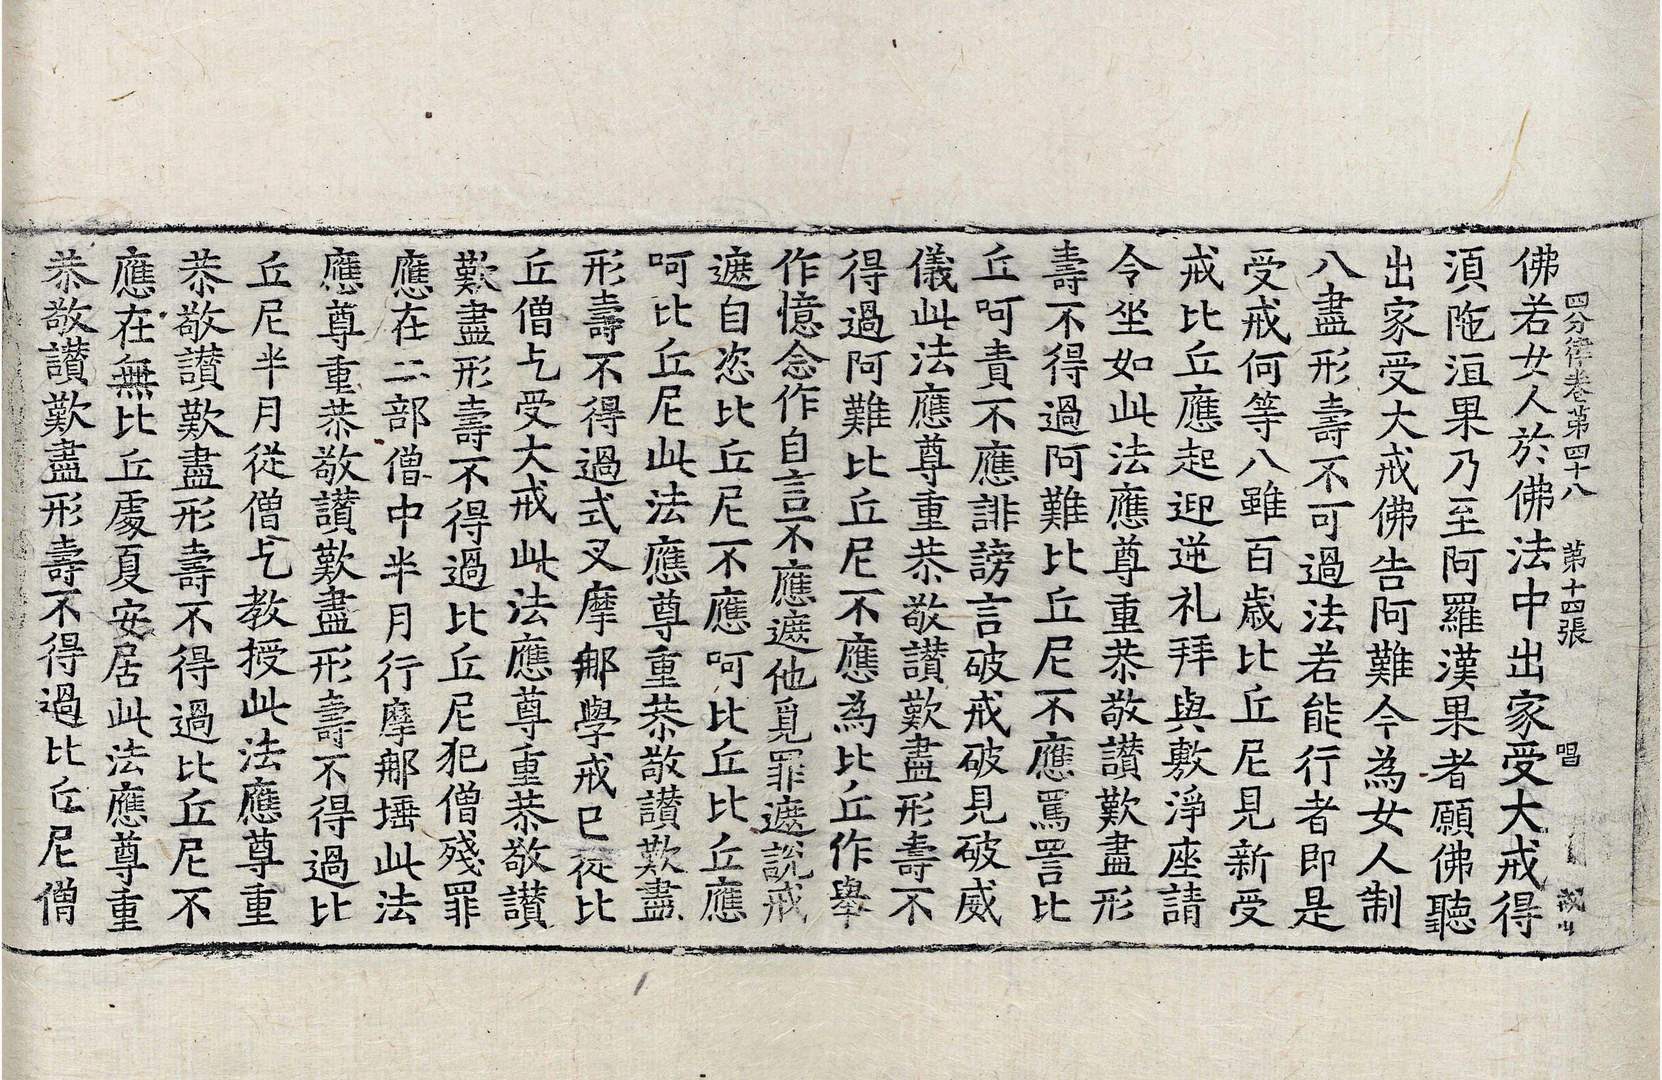 四分律卷第四十八 第十四張 唱
佛若女人於佛法中出家受大戒得
湏陁洹果乃至阿羅漢果者願佛聽
出家受大戒佛告阿難今為女人制
八盡形壽不可過法若能行者即是
受戒何等八雖百歲比丘尼見新受
戒比丘應起迎逆礼拜與敷淨座請
令坐如此法應尊重恭敬讃歎盡形
壽不得過阿難比丘尼不應罵詈比
丘呵責不應誹謗言破戒破見破威
儀此法應尊重恭敬讃歎盡形壽不
得過阿難比丘尼不應為比丘作舉
作憶念作自言不應遮他覓罪遮說戒
遮自恣比丘尼不應呵比丘比丘應
呵比丘尼此法應尊重恭敬讃歎盡
形壽不得過式叉摩那學戒已從比
丘僧乞受大戒此法應尊重恭敬讃
歎盡形壽不得過比丘尼犯僧殘罪
應在二部僧中半月行摩那埵此法
應尊重恭敬讃歎盡形壽不得過比
丘尼半月從僧乞教授此法應尊重
恭敬讃歎盡形壽不得過比丘尼不
應在無比丘處夏安居此法應尊重
恭敬讃歎盡形壽不得過比丘尼僧